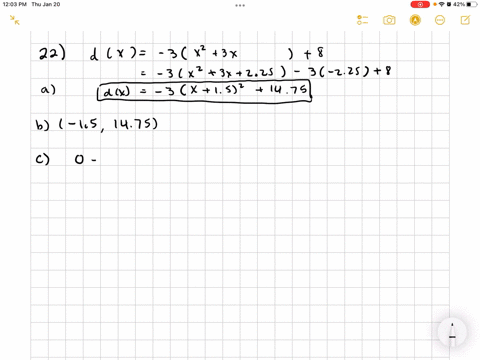 12:03 PM Thu Jan 20
42%
22) d(x) = -3(x² + 3x ) + 8
= -3(x² + 3x + 2.25) - 3(-2.25) + 8
a) d(x) = -3(x + 1.5)² + 14.75
b) (-1.5, 14.75)
c) 0 -